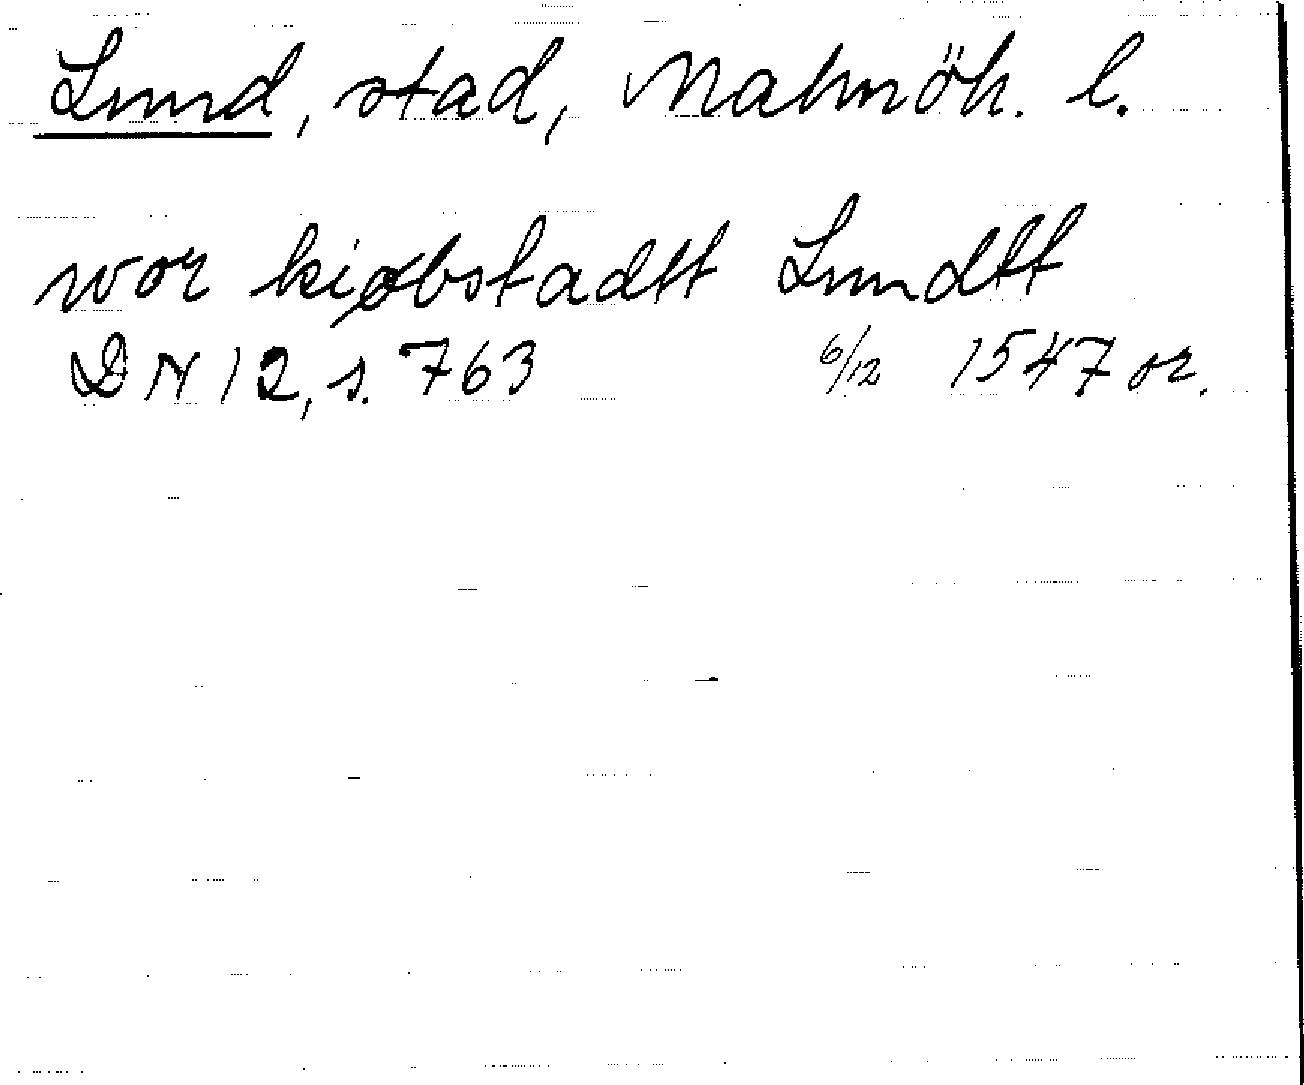 Lund, stad, Malmöh. l.
wor kiøbstadtt Lundtt
DN 12, s. 763 6/12 1547 or.